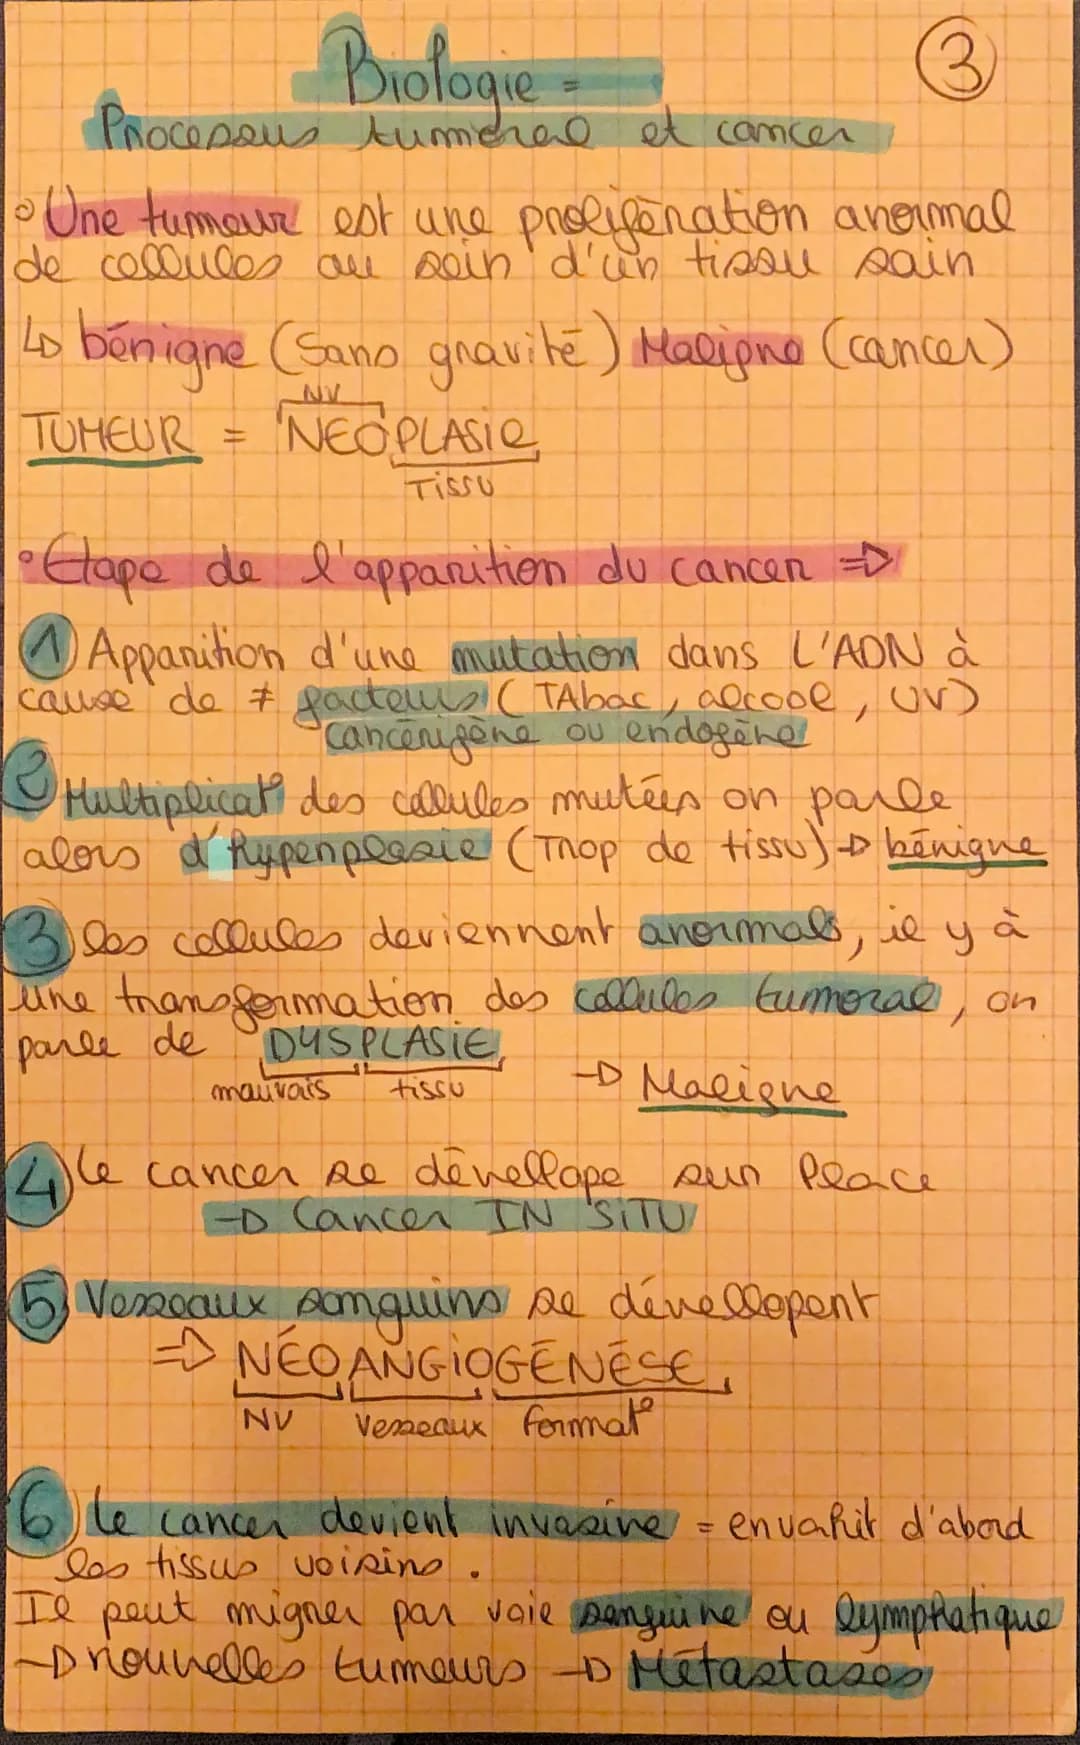 Biologie =
3
Processus tumoral et cancer
° Une tumeur est une prolifération anormal
de cellules au sein d'un tissu sain
↳ bénigne (Sans gravité) Maligne (cancer)
NV
TUMEUR = NEOPLASIE
TISSU
• Etape de l'apparition du cancer ⇒
1 Apparition d'une mutation dans L'ADN à
cause de ≠ facteurs (TAbac, alcool, UV)
cancérigène ou endogène
2 Multiplicat° des cellules mutées on parle
alors d'hyperplasie (Trop de tissu) → bénigne
3 les cellules deviennent anormals, il y à
une transformation des cellules tumoral, on
parle de DYSPLASIE
mauvais tissu → Maligne
4 le cancer se dévellope sur place
→ Cancer IN SITU
5 Vesseaux sanguins se dévellopent
⇒ NÉOANGIOGÉNÉSE
NV Vesseaux format°
6 le cancer devient invasive = envahit d'abord
les tissus voisins.
Il peut migrer par voie sanguine ou lymphatique
→ nouvelles tumeurs → Métastases